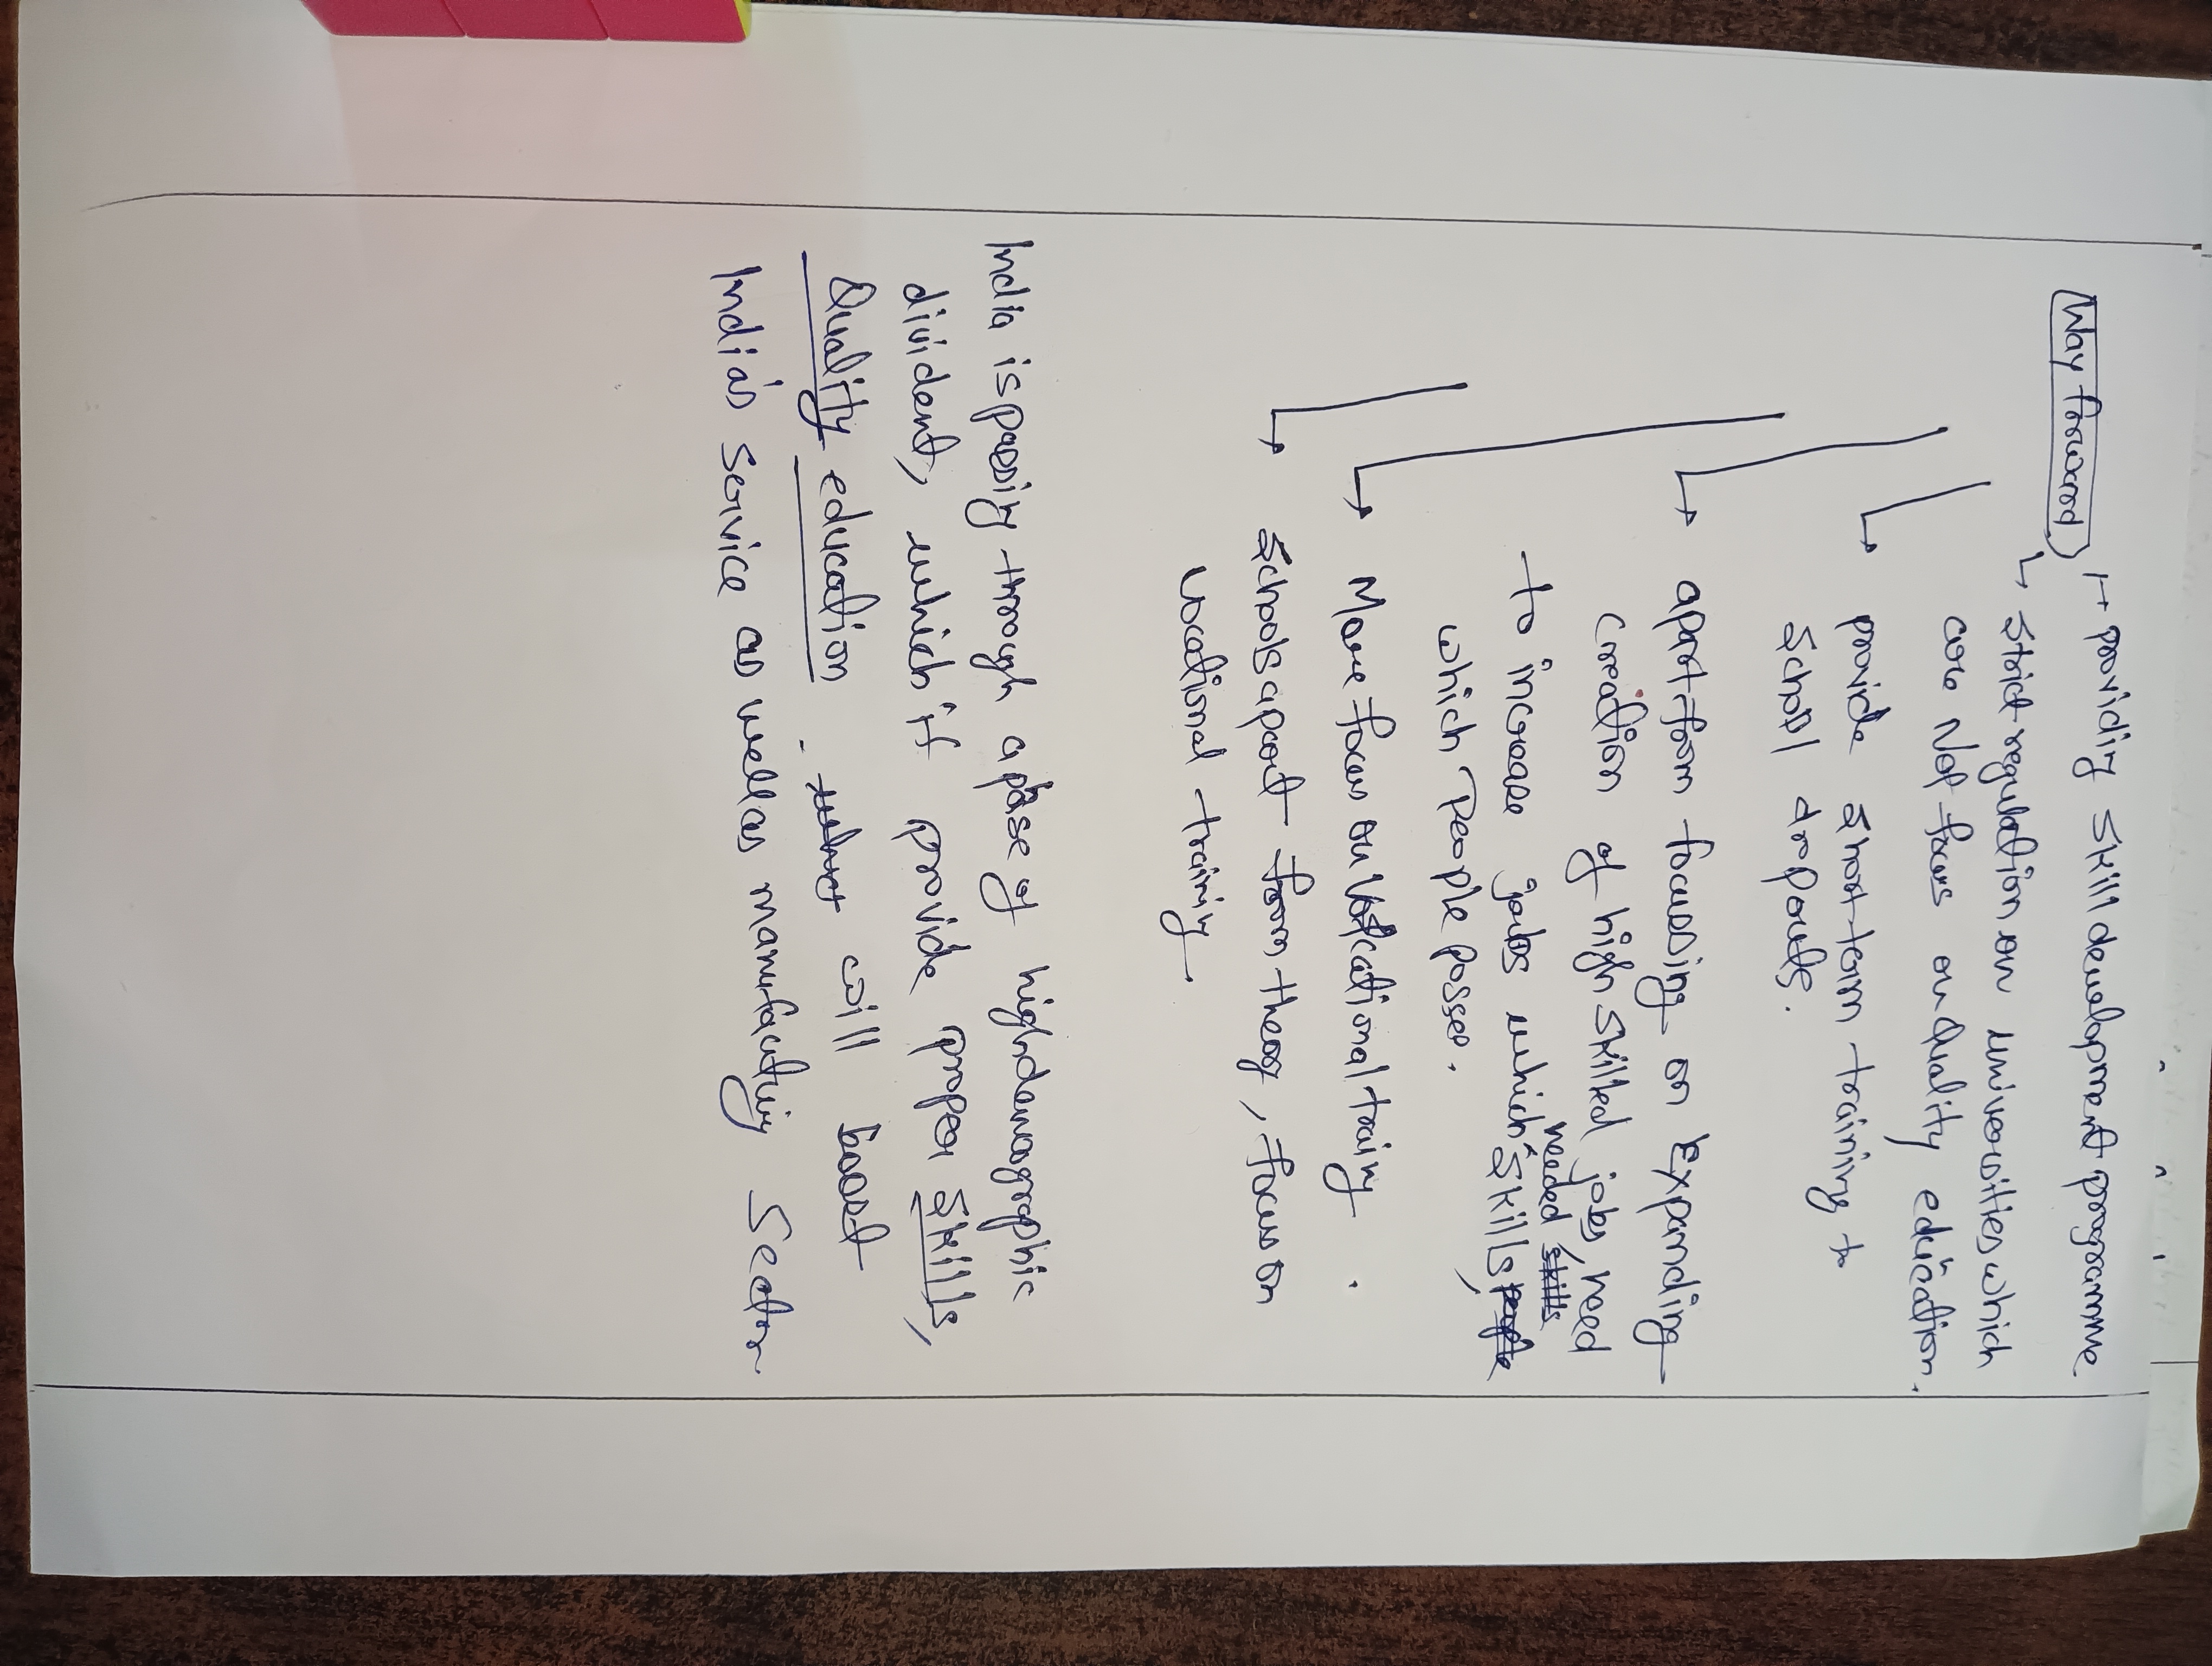 Way forward
↳ providing skill development programme.
↳ strict regulation on universities which
are not focus on quality education.
↳ provide short-term training to
school dropouts.
↳ apart from focussing on Expanding
creation of high skilled jobs, need
to increase jobs which needed skills,
which People posses.
↳ More focus on Vocational training.
↳ Schools apart from theory, focus on
vocational training.
India is passing through a phase of high demographic
divident, which if provide proper skills,
Quality education will boost
India's Service as well as manufacturing Sector